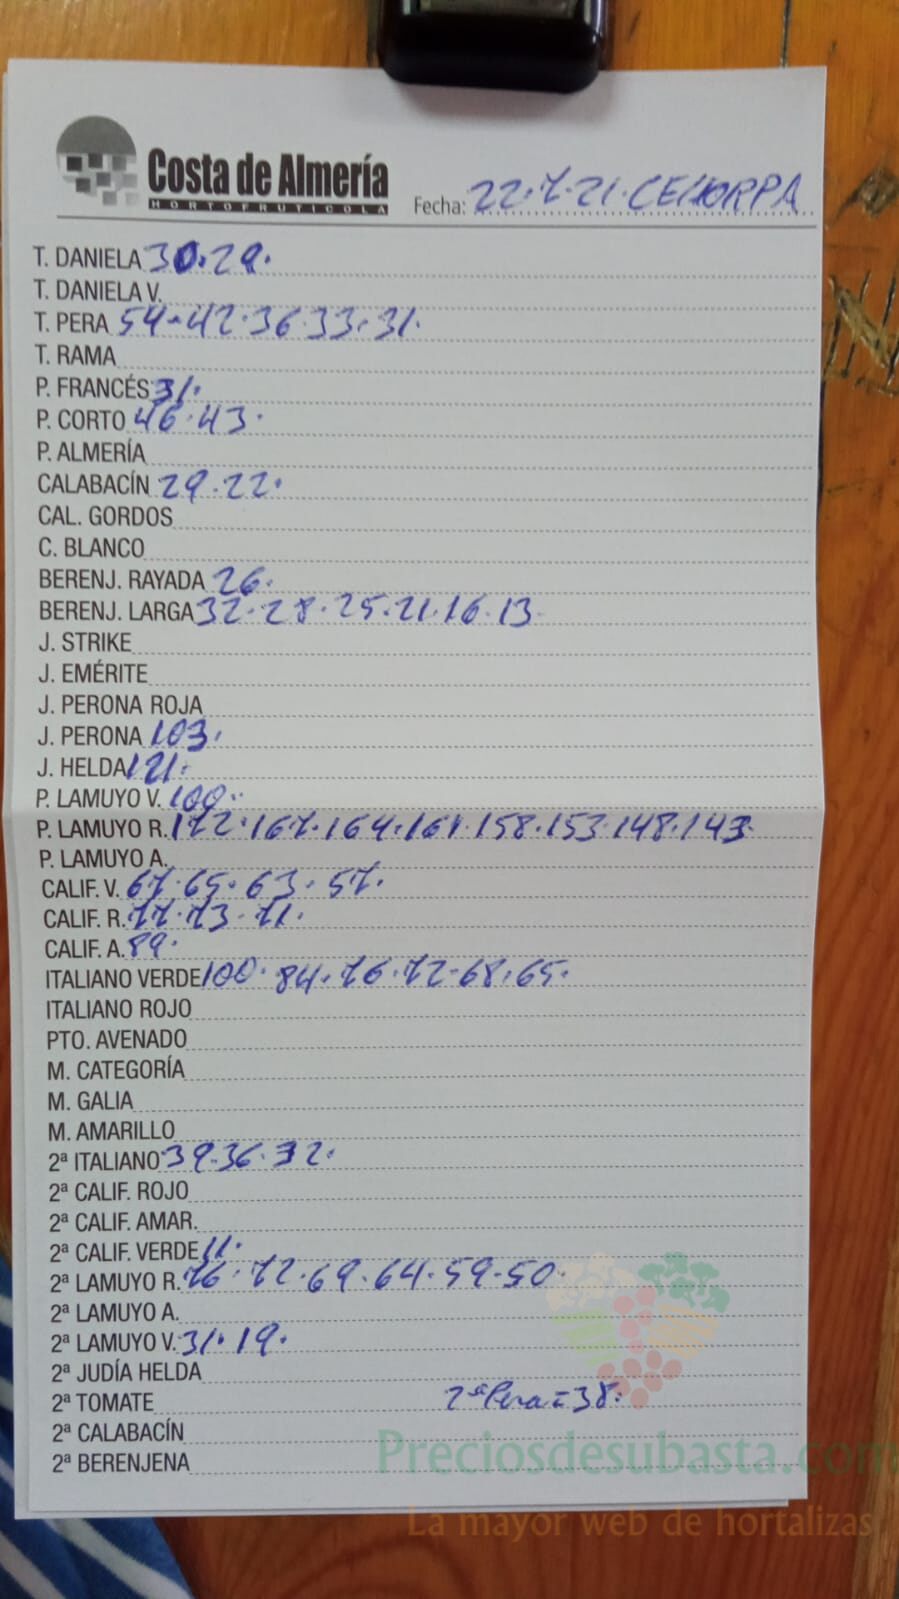 Costa de Almería
HORTOFRUTICOLA
Fecha: 22.7.21. CEHORPA
T. DANIELA 30.29.
T. DANIELA V.
T. PERA 54.42.36.33.31.
T. RAMA
P. FRANCÉS 31.
P. CORTO 46.43.
P. ALMERÍA
CALABACÍN 29.22.
CAL. GORDOS
C. BLANCO
BERENJ. RAYADA 26.
BERENJ. LARGA 32.28.25.21.16.13
J. STRIKE
J. EMÉRITE
J. PERONA ROJA
J. PERONA 103.
J. HELDA 121.
P. LAMUYO V. 100.
P. LAMUYO R. 172.167.164.161.158.153.148.143
P. LAMUYO A.
CALIF. V. 67.65.63.57.
CALIF. R. 77.73.71.
CALIF. A. 89.
ITALIANO VERDE 100.84.76.72.68.65.
ITALIANO ROJO
PTO. AVENADO
M. CATEGORÍA
M. GALIA
M. AMARILLO
2ª ITALIANO 39.36.32.
2ª CALIF. ROJO
2ª CALIF. AMAR.
2ª CALIF. VERDE 11.
2ª LAMUYO R. 76.72.69.64.59.50.
2ª LAMUYO A.
2ª LAMUYO V. 31.19.
2ª JUDÍA HELDA
2ª TOMATE 2ª Pera = 38.
2ª CALABACÍN
2ª BERENJENA
Preciosdesubasta.com
La mayor web de hortalizas